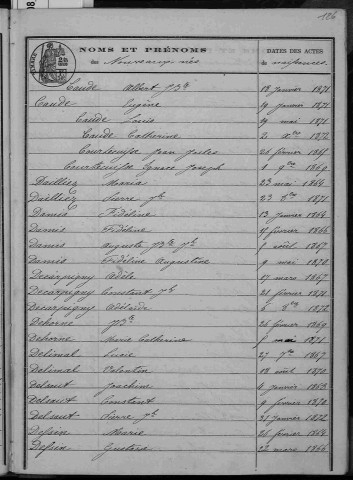 126
NOMS ET PRÉNOMS
DATES DES ACTES
des Nouveaux nés
de naissances
Caude Albert J.Bte 18 janvier 1871
Caude Eugène 19 janvier 1871
Caude Louis 19 mai 1871
Caude Catherine 2 Xbre 1872
Courtecuisse Jean Jules 26 février
Courtecuisse Ignace Joseph 1 9bre 1869
Dailliez Maria 23 mai 1864
Dailliez Pierre Jh 23 1871
Damis Fideline 13 janvier 1864
Damis Fideline 11 février 1866
Damis Auguste J.Bte Jh 1 août 1867
Damis Fideline Augustine 9 mai 1870
Decarpigny Adèle 17 mars 1867
Decarpigny Constant Jh 21 février 1871
Decarpigny Adélaïde 6 1872
Dehorne J.Bte 26 février 1869
Dehorne Marie Catherine mai 1871
Delimal Lucie 27 7bre 1867
Delimal Valentin 18 août 1870
Delsaut Joachim 6 janvier 1863
Delsaut Constant 9 février 1870
Delsaut Pierre Jh 31 janvier 1872
Defsin Marie 26 février 1864
Defsin Gustave 22 mars 1866